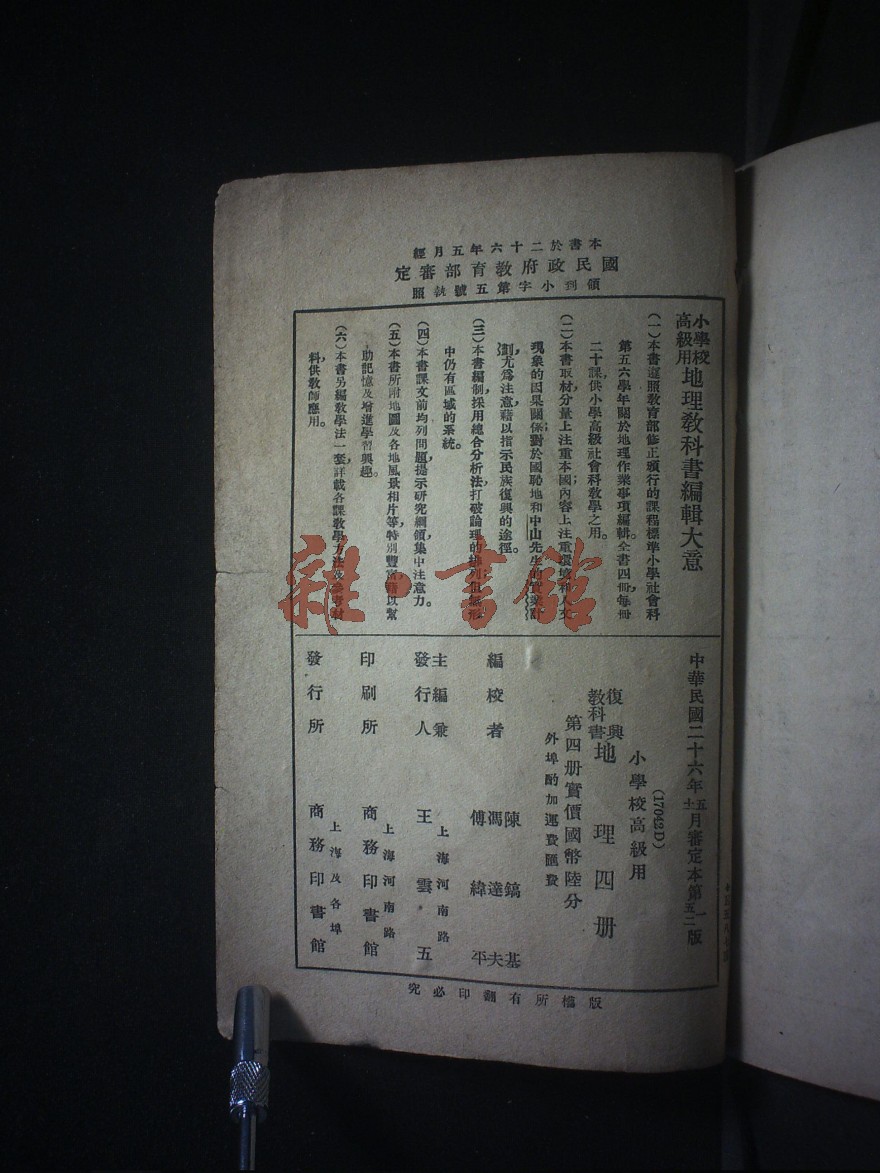 本書於二十六年五月經
國民政府教育部審定
領到小字第五號執照
小學校高級用地理教科書編輯大意
(一)本書遵照教育部修正頒行的課程標準小學社會科
第五六學年關於地理作業事項編輯全書四冊每冊
二十課,供小學高級社會科教學之用。
(二)本書取材,分量上注重本國,內容上注重環境和人文
現象的因果關係;對於國恥地和中山先生的實業計
劃,尤爲注意,藉以指示民族復興的途徑。
(三)本書編制,採用總合分析法,打破論理的排列,但無形
中仍有區域的系統。
(四)本書課文前均列問題,提示研究綱領,集中注意力。
(五)本書所附地圖及各地風景相片等,特別豐富,藉以幫
助記憶及增進學習興趣。
(六)本書另編教學法一套,詳載各課教學方法及參考材
料,供教師應用。
中華民國二十六年五月審定本第一版
十一 五二
(17042D)
小學校高級用
復興教科書 地理四册
第四册實價國幣陸分
外埠酌加運費匯費
編校者 陳鎬基 馮達夫 傅緯平
主編兼發行人 上海河南路 王雲五
印刷所 上海河南路 商務印書館
發行所 上海及各埠 商務印書館
版權所有翻印必究
雜·書館